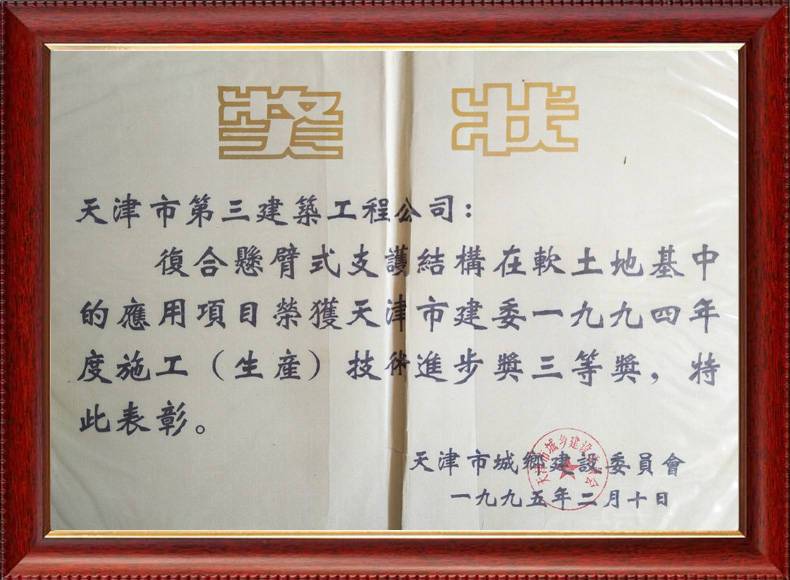 奖状
天津市第三建築工程公司：
復合懸臂式支護結構在軟土地基中
的應用項目榮獲天津市建委一九九四年
度施工（生産）技術進步獎三等獎，特
此表彰。
天津市城鄉建設委員會
一九九五年二月十日
天津市城乡建设委员会